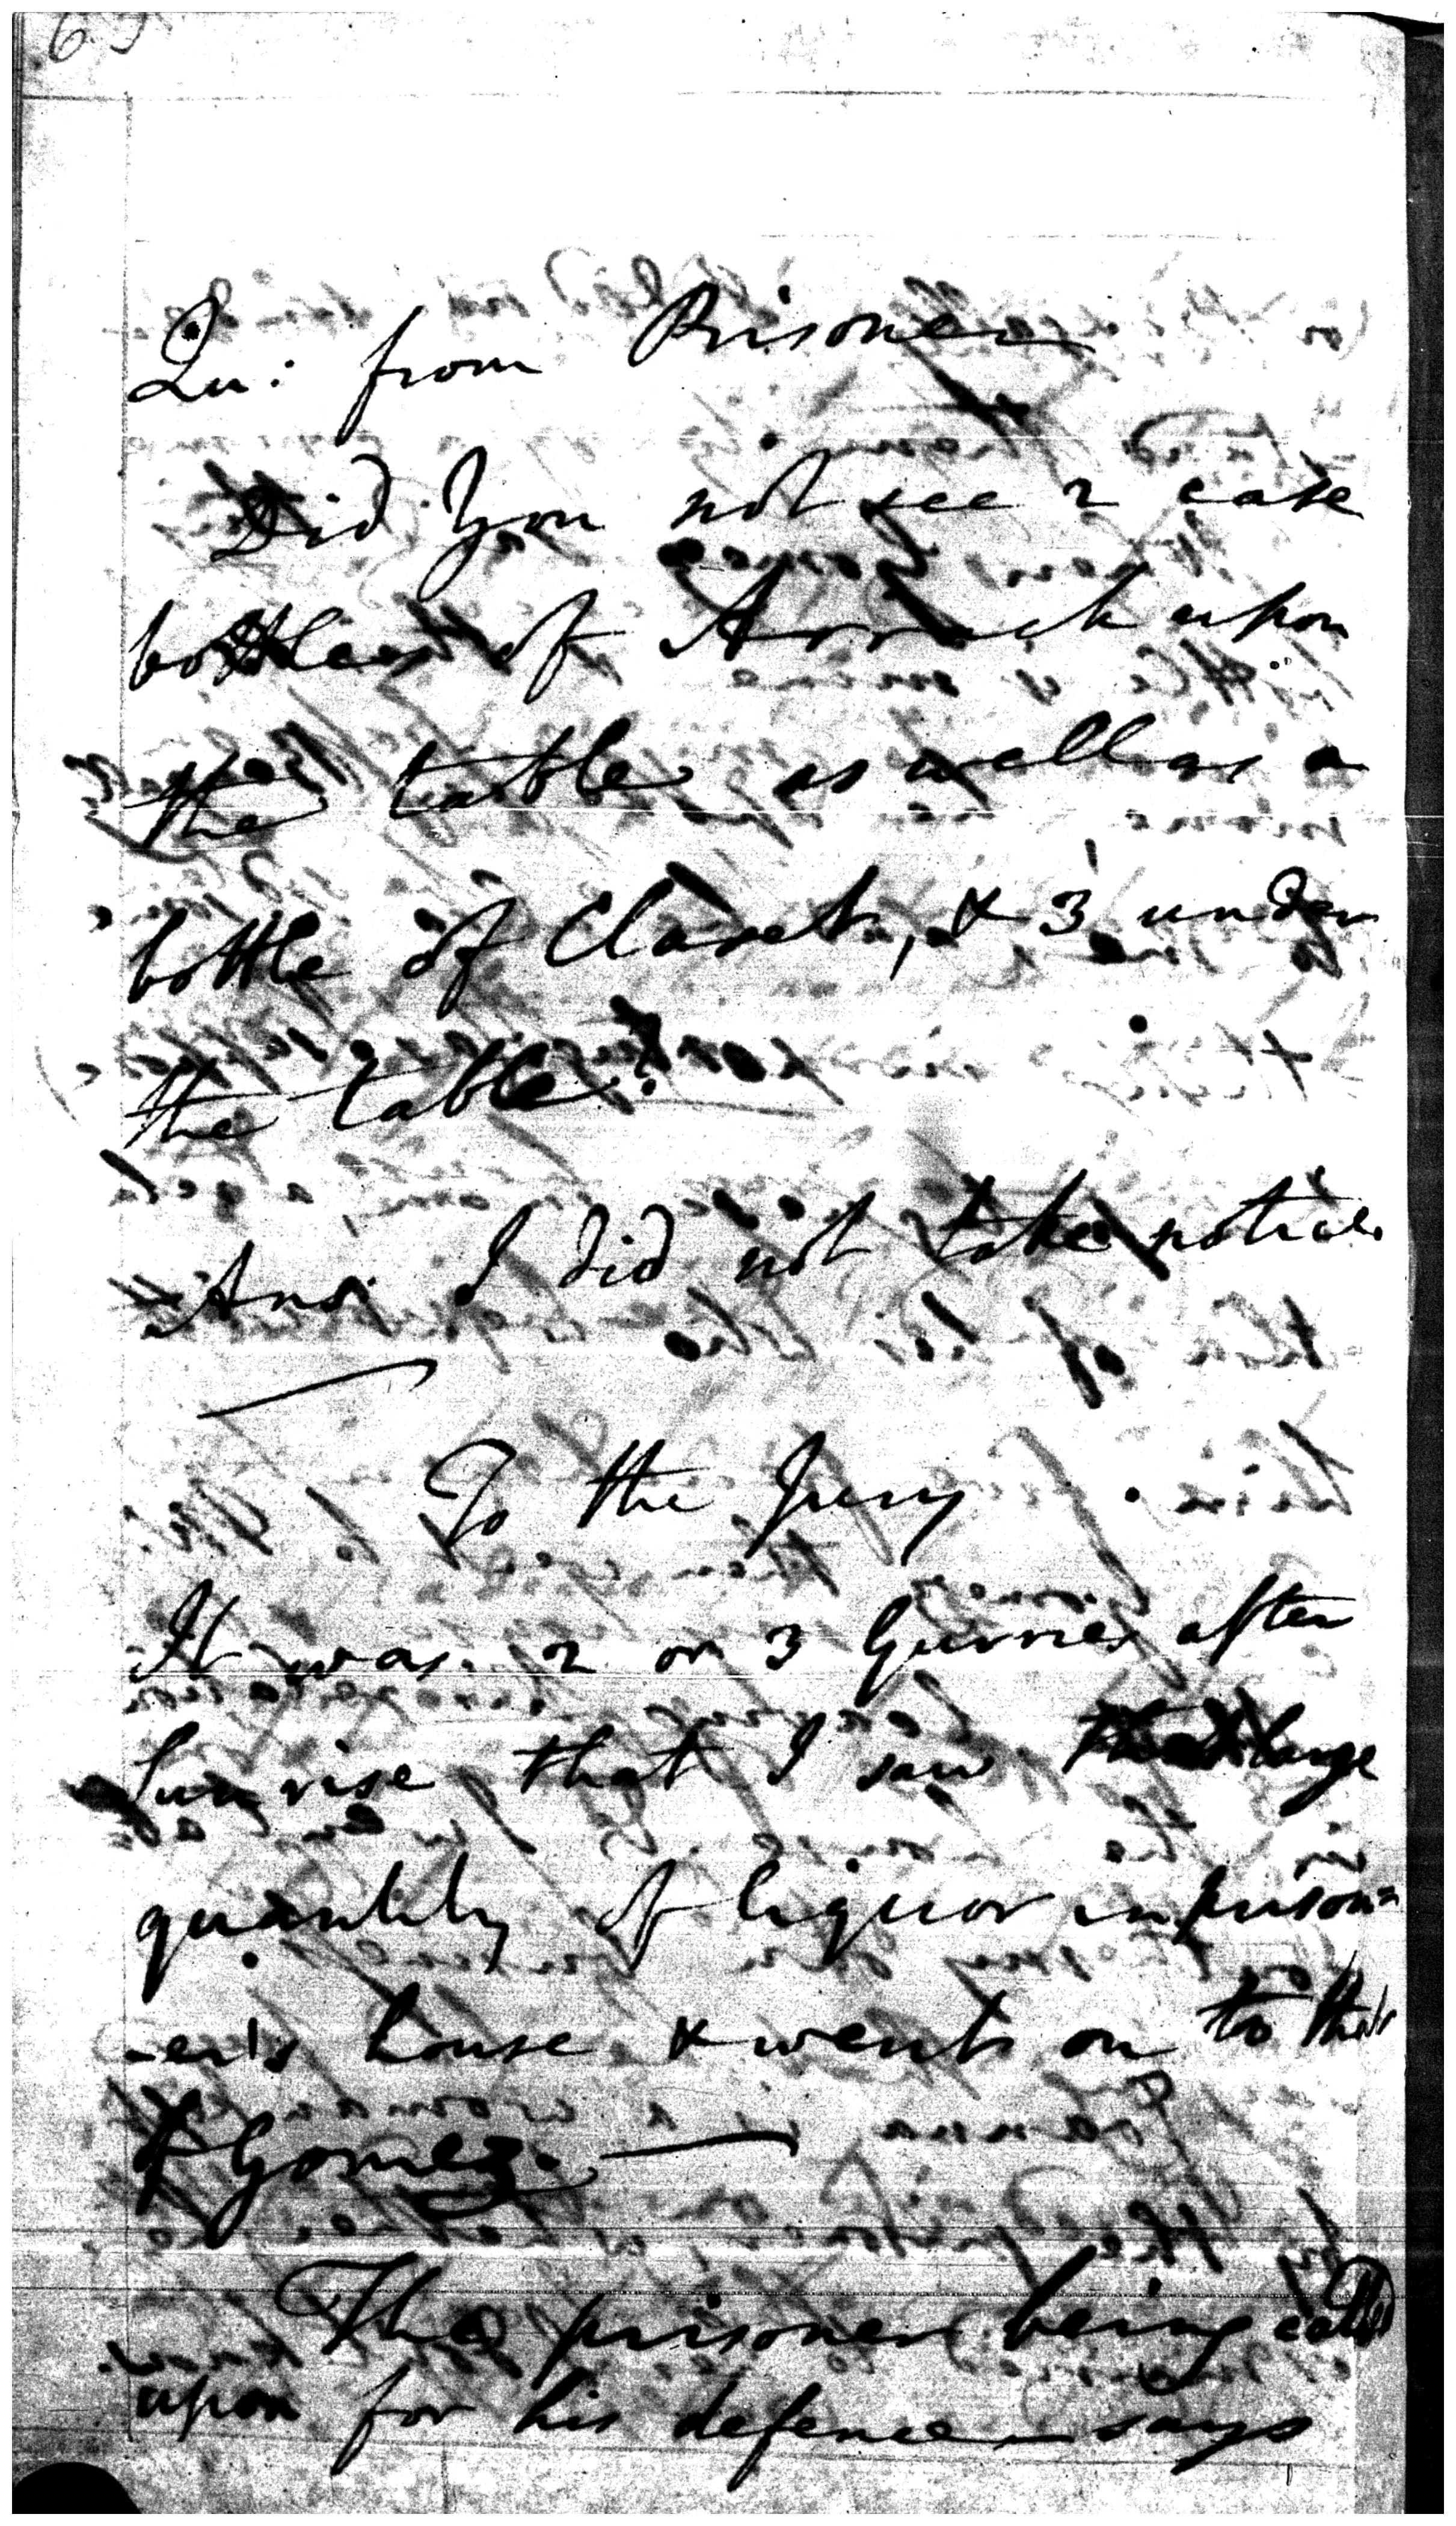 Qu: from Prisoner
Did You not see 2 case
bottles of Arrack upon
the table as well as a
bottle of Claret, & 3 under
the table?
Ans: I did not take notice
To the Jury
It was 2 or 3 Gurries after
Sun rise that I saw large
quantity of liquor in prison=
-er's house & went on to
Gomez.
The prisoner being called
upon for his defence says